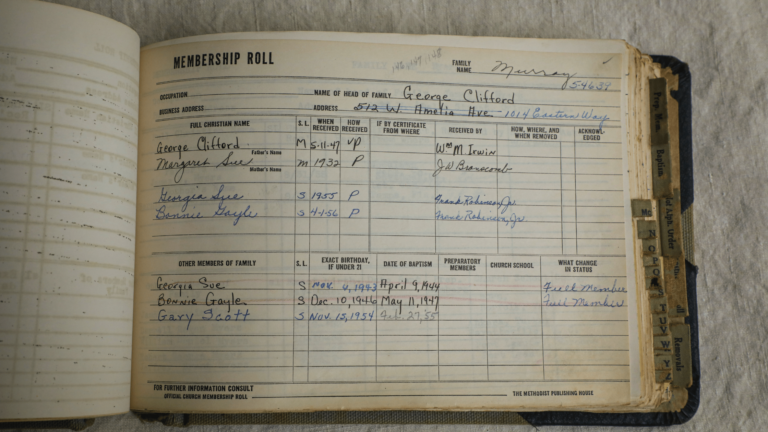 MEMBERSHIP ROLL
FAMILY NAME Murray
54639
OCCUPATION
NAME OF HEAD OF FAMILY George Clifford
BUSINESS ADDRESS ADDRESS 512 W Amelia Ave. - 1014 Eastern Way
FULL CHRISTIAN NAME S.L. WHEN RECEIVED HOW RECEIVED IF BY CERTIFICATE FROM WHERE RECEIVED BY HOW, WHERE, AND WHEN REMOVED ACKNOWL-EDGED
George Clifford M 5-11-47 P Wm M Irwin
Father's Name
Margaret Sue M 1932 P J.W. Branscomb
Mother's Name
Georgia Sue S 1955 P Frank Robinson, Jr.
Bonnie Gayle S 4-1-56 P Franc Robinson, Jr.
OTHER MEMBERS OF FAMILY S.L. EXACT BIRTHDAY, IF UNDER 21 DATE OF BAPTISM PREPARATORY MEMBERS CHURCH SCHOOL WHAT CHANGE IN STATUS
Georgia Sue S Nov. 4, 1943 April 9, 1944 Full Member
Bonnie Gayle S Dec. 10, 1946 May 11, 1947 Full Member
Gary Scott S Nov. 15, 1954 Feb. 27, 55
FOR FURTHER INFORMATION CONSULT
OFFICIAL CHURCH MEMBERSHIP ROLL THE METHODIST PUBLISHING HOUSE
Baptism
Mc
N
O
W
Y
Removals